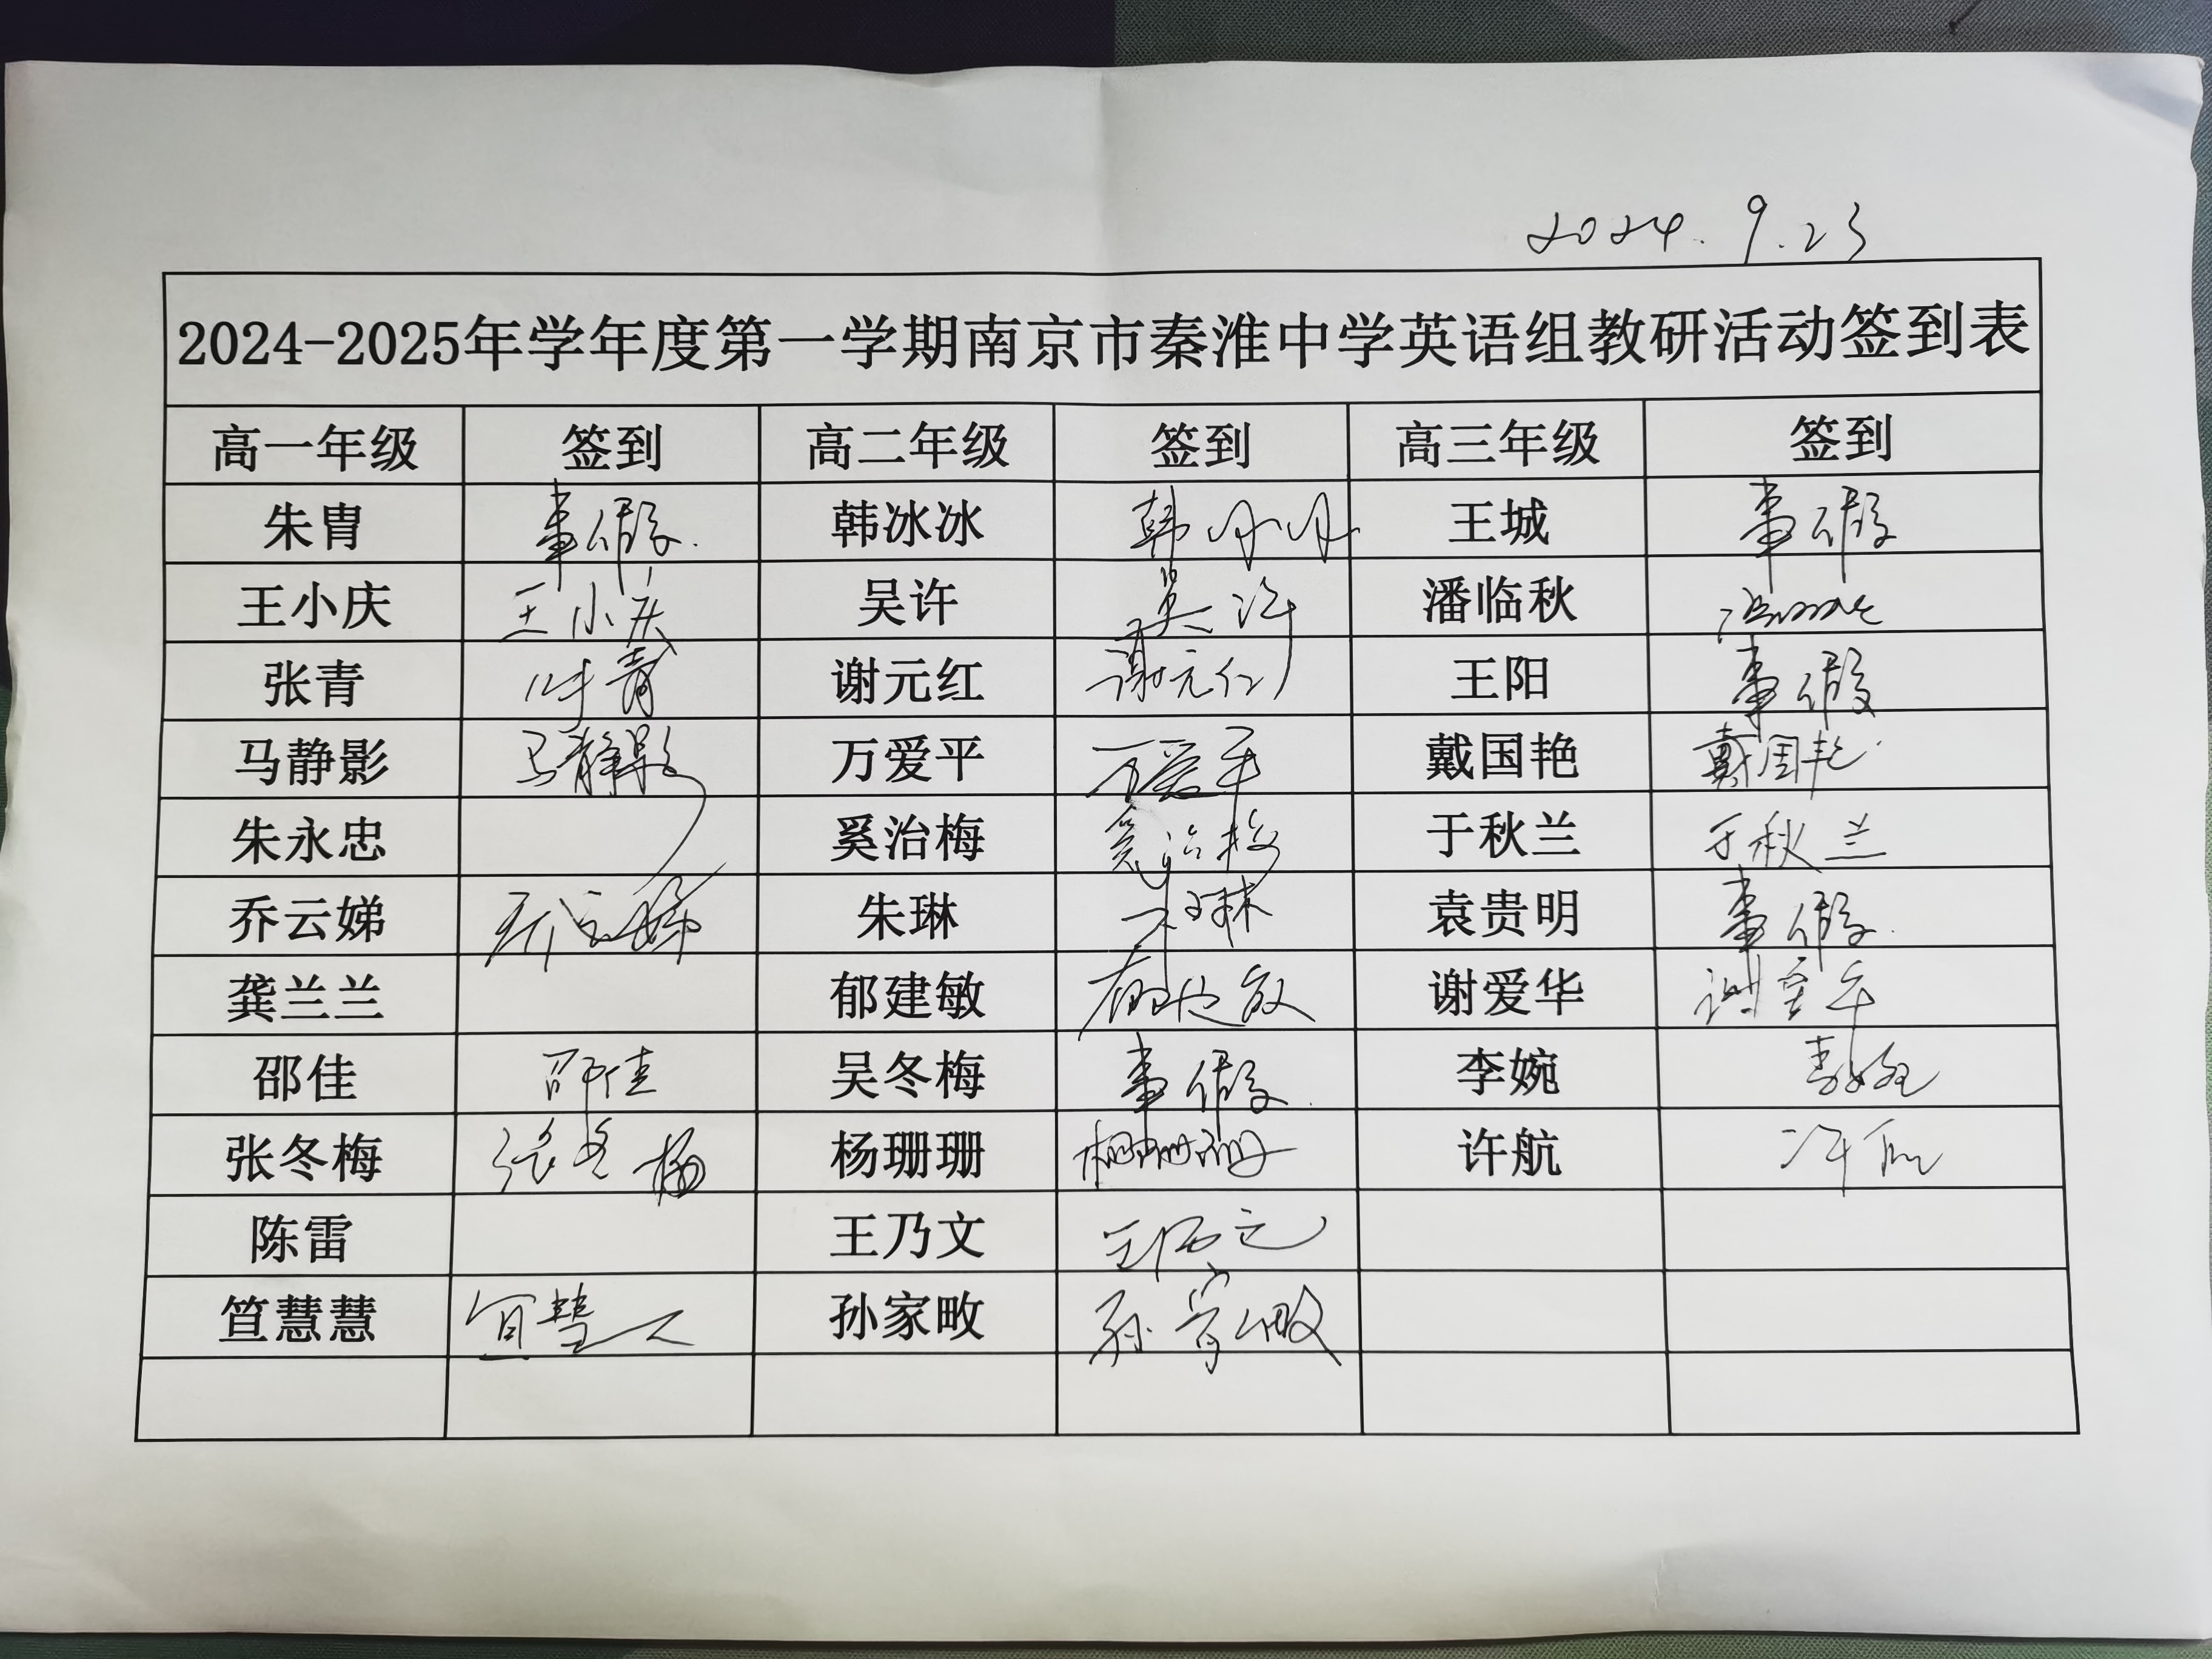 2024.9.23
2024-2025年学年度第一学期南京市秦淮中学英语组教研活动签到表
高一年级 签到 高二年级 签到 高三年级 签到
朱胄 事假. 韩冰冰 韩冰冰 王城 事假
王小庆 王小庆 吴许 吴许 潘临秋
张青 张青 谢元红 谢元红 王阳 事假
马静影 马静影 万爱平 万爱平 戴国艳 戴国艳
朱永忠 奚治梅 奚治梅 于秋兰 于秋兰
乔云娣 乔云娣 朱琳 朱琳 袁贵明 事假.
龚兰兰 郁建敏 郁建敏 谢爱华 谢爱华
邵佳 邵佳 吴冬梅 事假. 李婉 李婉
张冬梅 张冬梅 杨珊珊 杨珊珊 许航 许航
陈雷 王乃文 王乃文
笪慧慧 孙家畋 孙家畋